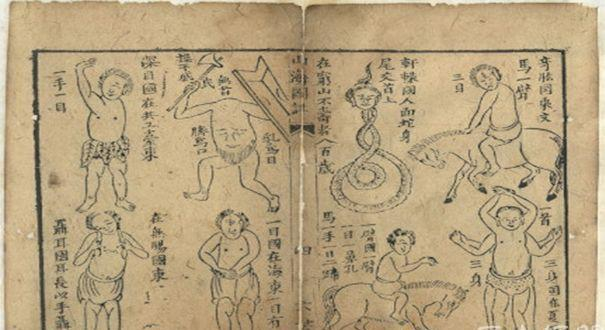 奇肱囯乘文
馬一臂
三目
軒轅國人面蛇身
尾交首上
在窮山不壽者八百歲
山海圖
四
乳為目
臍為口
無首
民
操干戚
深目國在共工臺東
一手一目
一首
三身
三身司在夏
一臂國一臂
一目一鼻孔
馬一手目二蹄
一目國在海東一目有
在無腸國東
聶耳國耳長以手聶